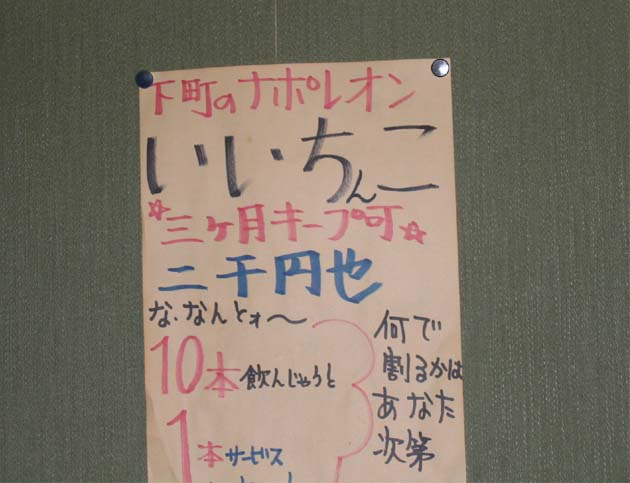 下町のナポレオン
いいちんこ
☆三ヶ月キープ可☆
二千円也
な、なんとォ〜
10本飲んじゃうと
1本サービス
何で
割るかは
あなた
次第